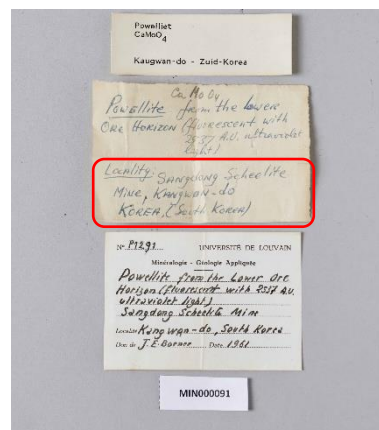 Powelliet
CaMoO4
Kaugwan-do - Zuid-Korea
Ca Mo O4
Powellite from the lower
Ore Horizon (fluorescent with
2537 A.U. ultraviolet
light)
Locality: Sangdong Scheelite
Mine, Kangwon-do
Korea, (South Korea)
N° P1291 UNIVERSITÉ DE LOUVAIN
Minéralogie - Géologie Appliquée
Powellite from the Lower Ore
Horizon (fluorescent with 2537 A.U.
ultraviolet light)
Sangdong Scheelite Mine
Localité Kangwan-do, South Korea
Don de J.E. Date 1961
MIN000091